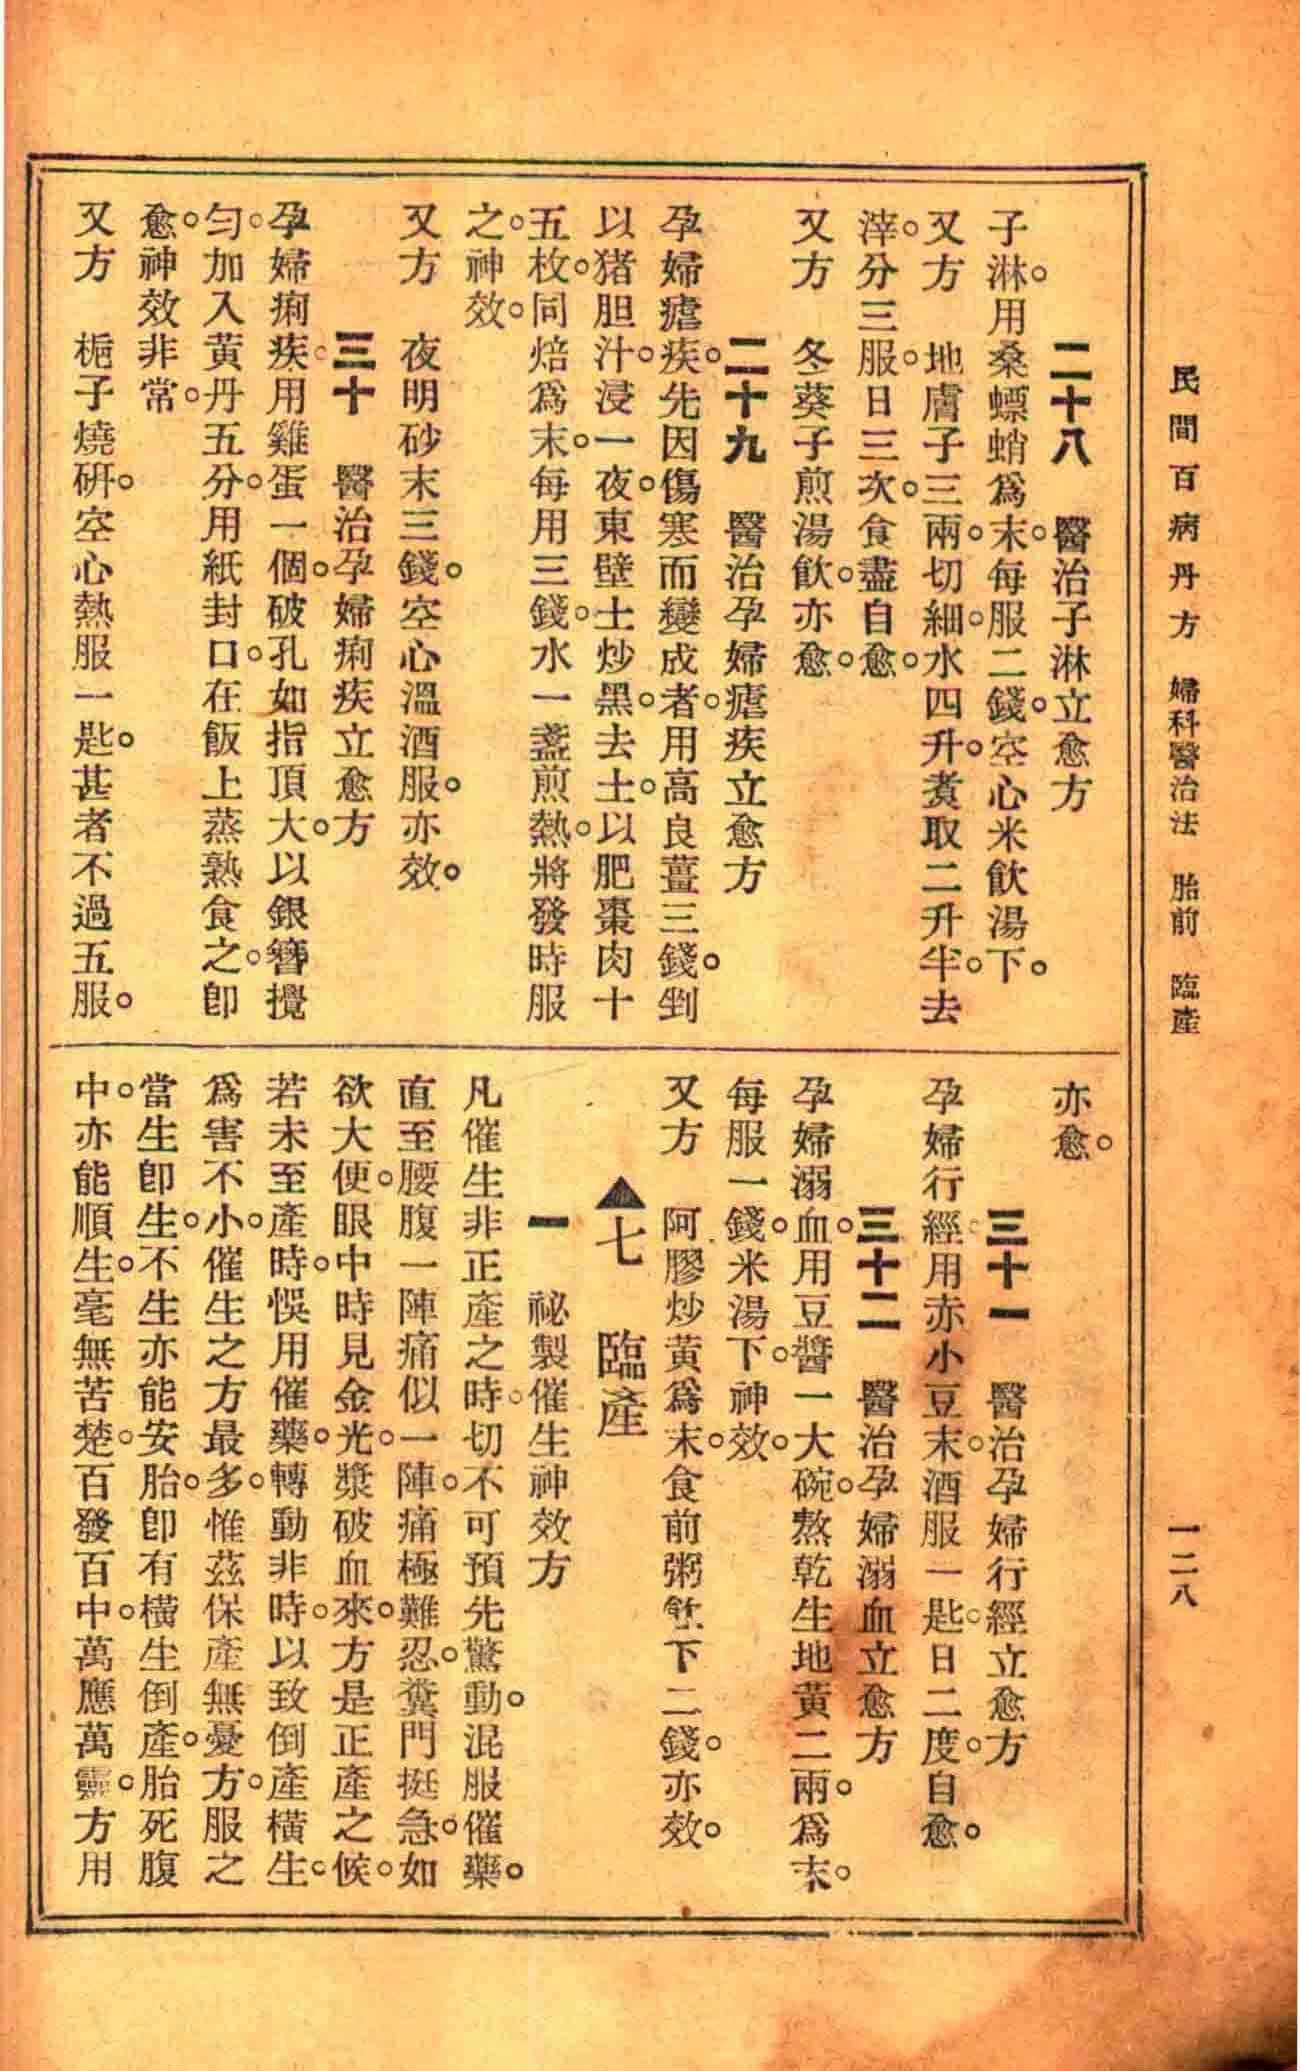 民間百病丹方　婦科醫治法　胎前　臨產　一二八
二十八　醫治子淋立愈方
子淋。用桑螵蛸爲末。每服二錢。空心米飲湯下。
又方　地膚子三兩。切細。水四升。煑取二升半。去
滓。分三服。日三次。食盡自愈。
又方　冬葵子煎湯飲。亦愈。
二十九　醫治孕婦瘧疾立愈方
孕婦瘧疾。先因傷寒而變成者。用高良薑三錢。剉
以猪胆汁。浸一夜。東壁土炒黑。去土。以肥棗肉十
五枚。同焙爲末。每用三錢。水一盞煎熱。將發時服
之。神效。
又方　夜明砂末三錢。空心溫酒服。亦效。
三十　醫治孕婦痢疾立愈方
孕婦痢疾。用雞蛋一個。破孔如指頂大。以銀簪攪
勻。加入黃丹五分。用紙封口。在飯上蒸熟食之。卽
愈。神效非常。
又方　梔子燒研。空心熱服一匙。甚者不過五服。
亦愈。
三十一　醫治孕婦行經立愈方
孕婦行經。用赤小豆末。酒服一匙。日二度。自愈。
三十二　醫治孕婦溺血立愈方
孕婦溺血。用豆醬一大碗。熬乾。生地黃二兩。爲末。
每服一錢。米湯下。神效。
又方　阿膠炒黃爲末。食前粥飲下二錢。亦效。
▲七　臨產
一　祕製催生神效方
凡催生非正產之時。切不可預先驚動。混服催藥。
直至腰腹一陣痛似一陣。痛極難忍。糞門挺急。如
欲大便。眼中時見金光。漿破血來。方是正產之候。
若未至產時。悞用催藥。轉動非時。以致倒產橫生。
爲害不小。催生之方最多。惟茲保產無憂方。服之
當生卽生。不生亦能安胎。卽有橫生倒產。胎死腹
中。亦能順生。毫無苦楚。百發百中。萬應萬靈。方用